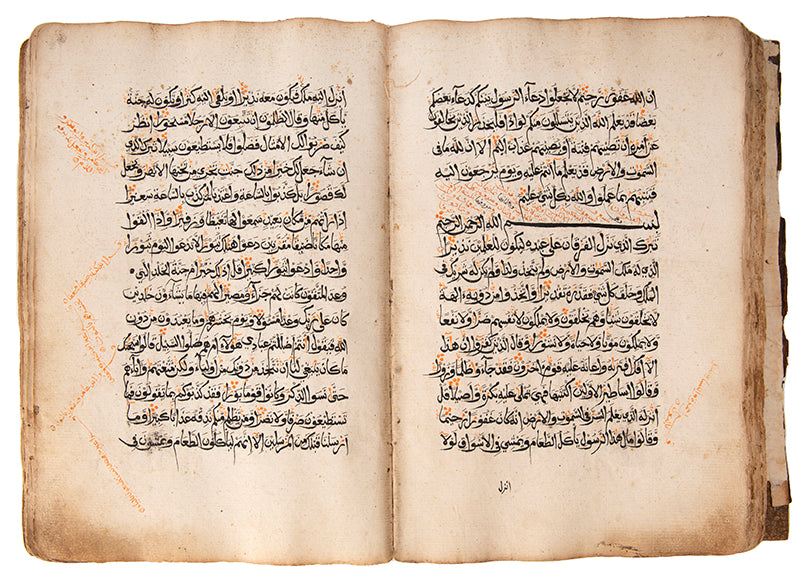 ان الله غفور رحيم لا تجعلوا دعاء الرسول بينكم كدعاء بعضكم
بعضا قد يعلم الله الذين يتسللون منكم لواذا فليحذر الذين يخالفون
عن امره ان تصيبهم فتنة او يصيبهم عذاب اليم الا ان لله ما في
السموت والارض قد يعلم ما انتم عليه ويوم يرجعون اليه
فينبئهم بما عملوا والله بكل شيء عليم
بسم الله الرحمن الرحيم
تبرك الذي نزل الفرقان على عبده ليكون للعلمين نذيرا
الذي له ملك السموت والارض ولم يتخذ ولدا ولم يكن له شريك في
الملك وخلق كل شيء فقدره تقديرا واتخذوا من دونه الهة
لا يخلقون شيئا وهم يخلقون ولا يملكون لانفسهم ضرا ولا نفعا
ولا يملكون موتا ولا حياة ولا نشورا وقال الذين كفروا ان هذا
الا افك افتريه واعانه عليه قوم اخرون فقد جاءو ظلما وزورا
وقالوا اساطير الاولين اكتتبها فهي تملى عليه بكرة واصيلا قل
انزله الذي يعلم السر في السموت والارض انه كان غفورا رحيما
وقالوا مال هذا الرسول ياكل الطعام ويمشي في الاسواق لولا
انزل
انزل اليه ملك فيكون معه نذيرا او يلقى اليه كنز او تكون له جنة
ياكل منها وقال الظلمون ان تتبعون الا رجلا مسحورا انظر
كيف ضربوا لك الامثال فضلوا فلا يستطيعون سبيلا تبرك الذي
ان شاء جعل لك خيرا من ذلك جنت تجري من تحتها الانهر ويجعل
لك قصورا بل كذبوا بالساعة واعتدنا لمن كذب بالساعة سعيرا
اذا راتهم من مكان بعيد سمعوا لها تغيظا وزفيرا واذا القوا
منها مكانا ضيقا مقرنين دعوا هنالك ثبورا لا تدعوا اليوم ثبورا
واحدا وادعوا ثبورا كثيرا قل اذلك خير ام جنة الخلد التي
وعد المتقون كانت لهم جزاء ومصيرا لهم فيها ما يشاءون خلدين
كان على ربك وعدا مسئولا ويوم يحشرهم وما يعبدون من دون
الله فيقول ءانتم اضللتم عبادي هؤلاء ام هم ضلوا السبيل قالوا سبحنك
ما كان ينبغي لنا ان نتخذ من دونك من اولياء ولكن متعتهم واباءهم
حتى نسوا الذكر وكانوا قوما بورا فقد كذبوكم بما تقولون فما
تستطيعون صرفا ولا نصرا ومن يظلم منكم نذقه عذابا كبيرا وما
ارسلنا قبلك من المرسلين الا انهم لياكلون الطعام ويمشون في